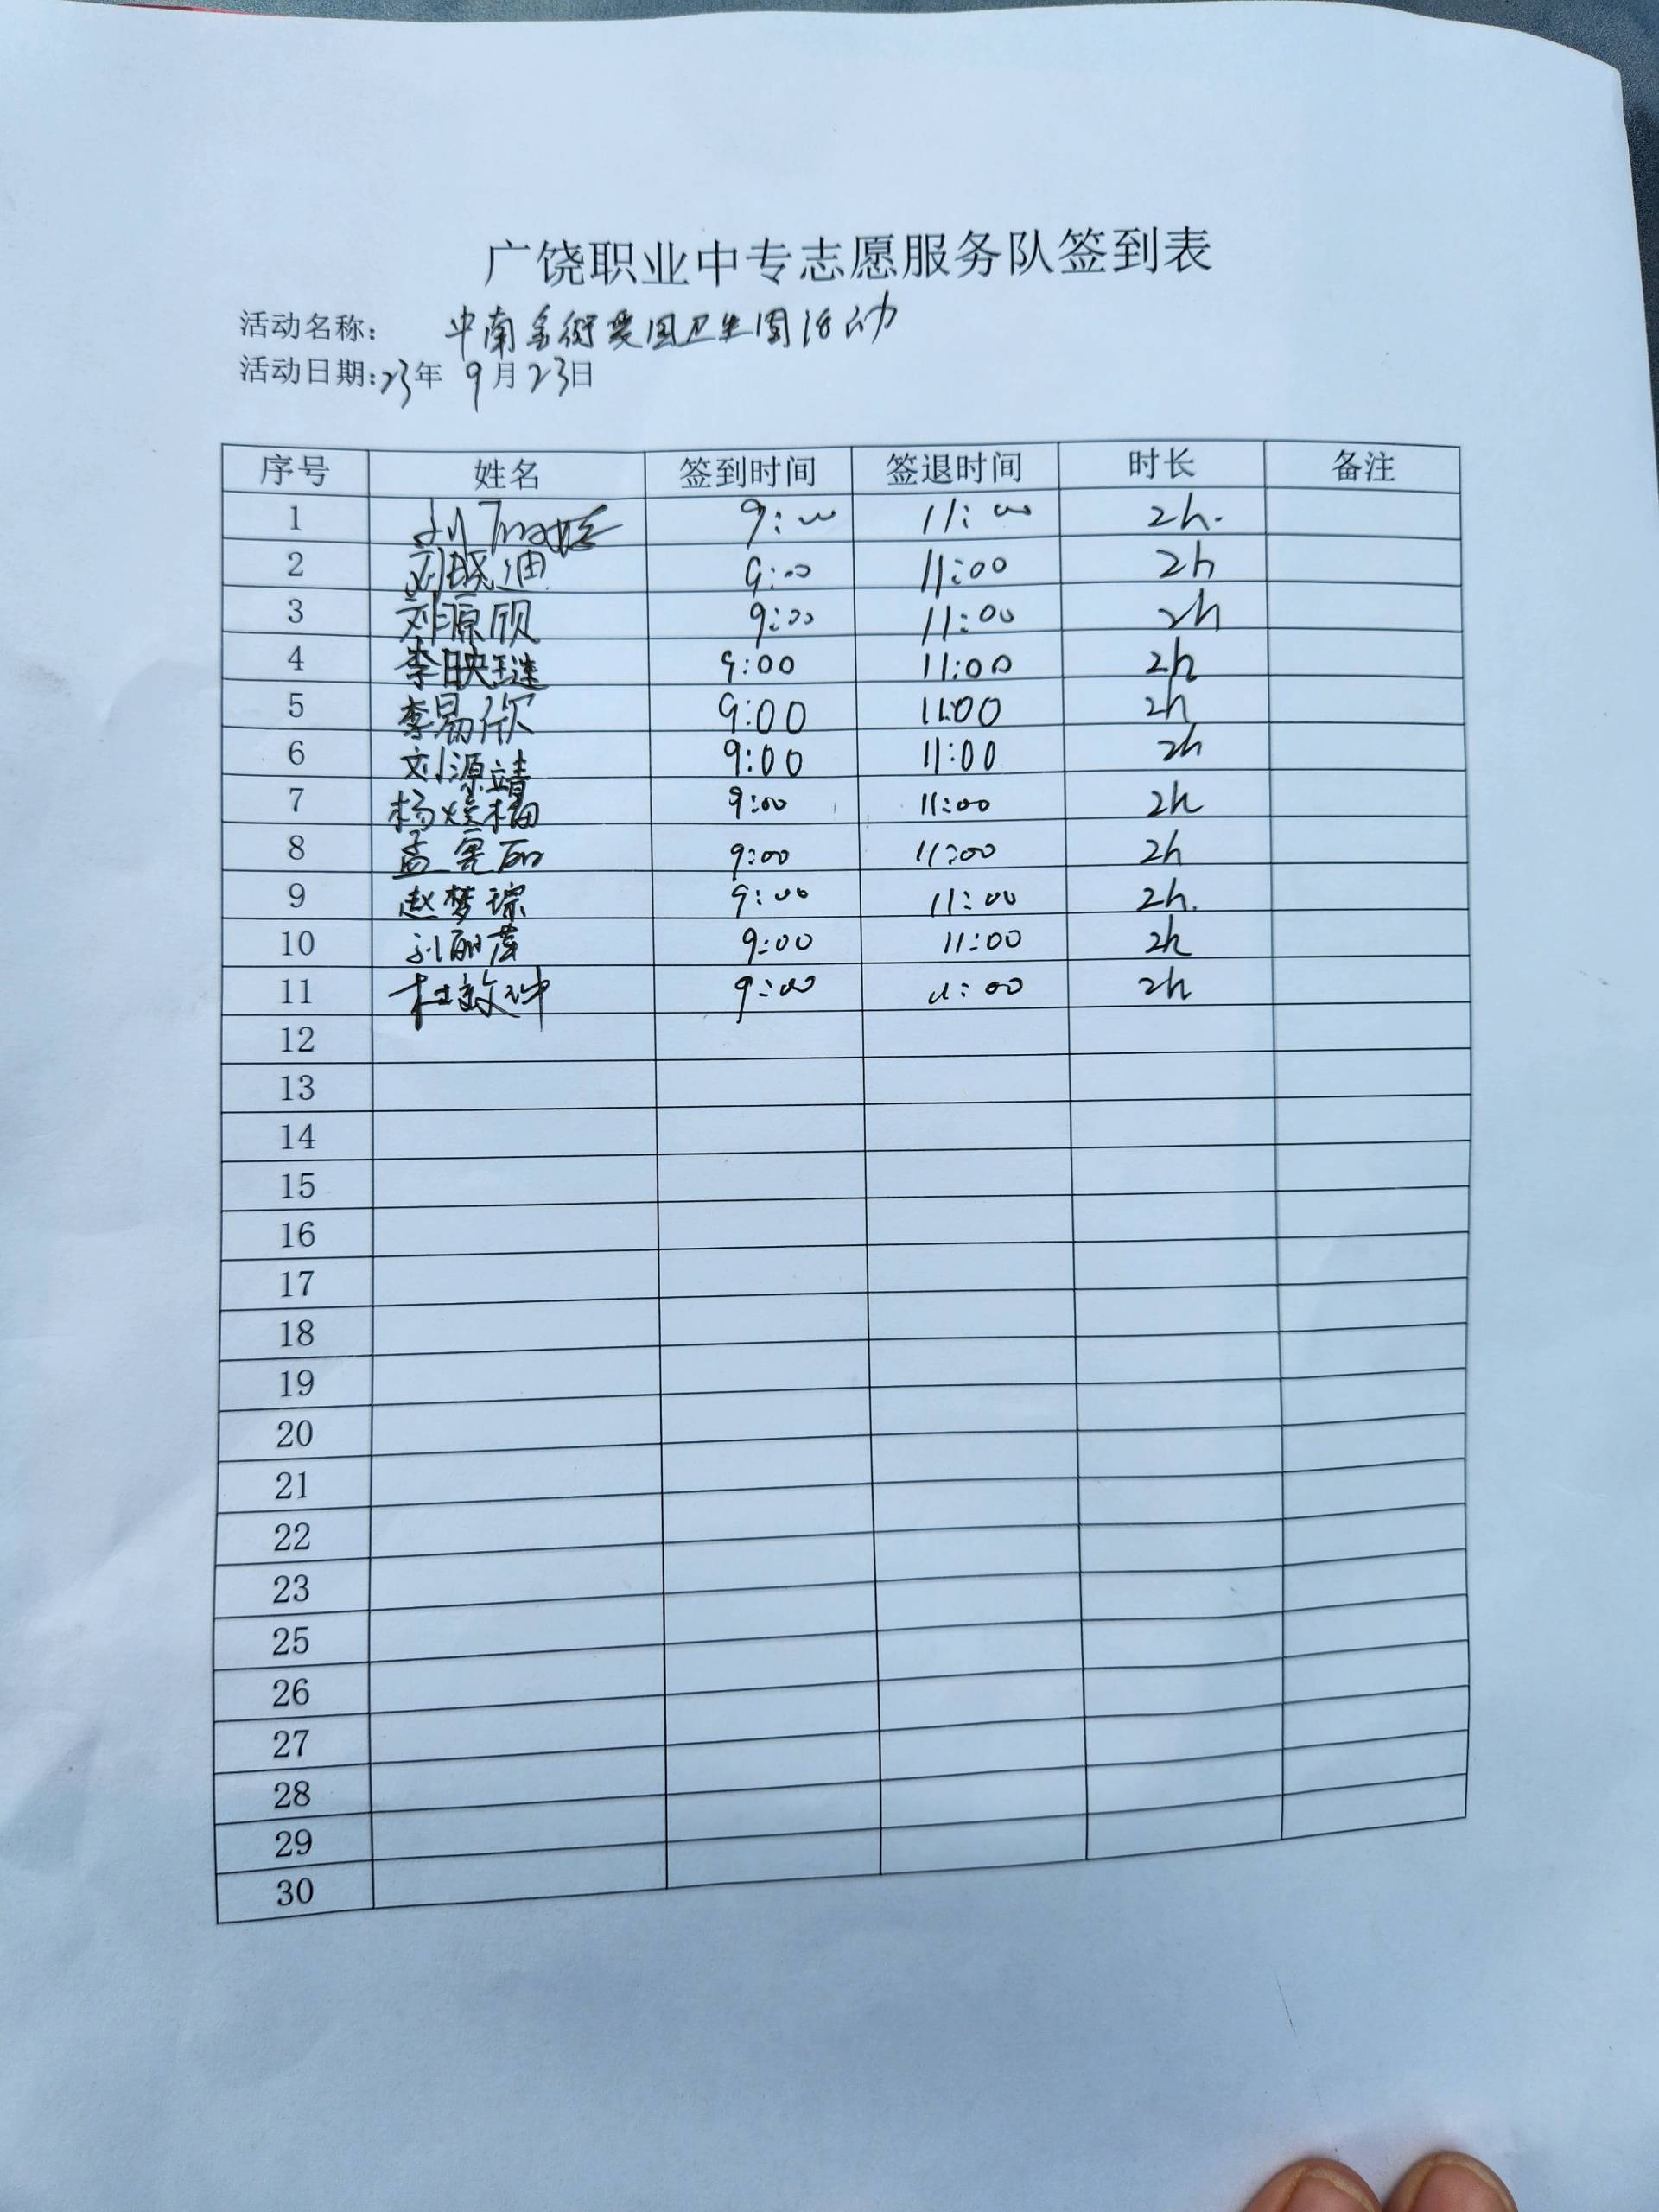 广饶职业中专志愿服务队签到表
活动名称: 中南金街爱国卫生周活动
活动日期:23年 9月23日
序号 姓名 签到时间 签退时间 时长 备注
1 刘 9:00 11:00 2h.
2 刘晓迪 9:00 11:00 2h
3 刘源颀 9:00 11:00 2h
4 李映琎 9:00 11:00 2h
5 李易欣 9:00 11:00 2h
6 刘源靖 9:00 11:00 2h
7 杨 9:00 11:00 2h
8 孟 9:00 11:00 2h
9 赵梦琮 9:00 11:00 2h.
10 刘丽 9:00 11:00 2h
11 杜 9:00 11:00 2h
12
13
14
15
16
17
18
19
20
21
22
23
25
26
27
28
29
30